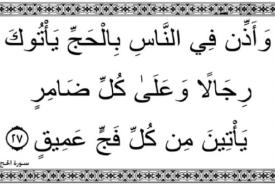 وَأَذِّن فِي النَّاسِ بِالْحَجِّ يَأْتُوكَ
رِجَالًا وَعَلَىٰ كُلِّ ضَامِرٍ
يَأْتِينَ مِن كُلِّ فَجٍّ عَمِيقٍ ٢٧
سورة الحج